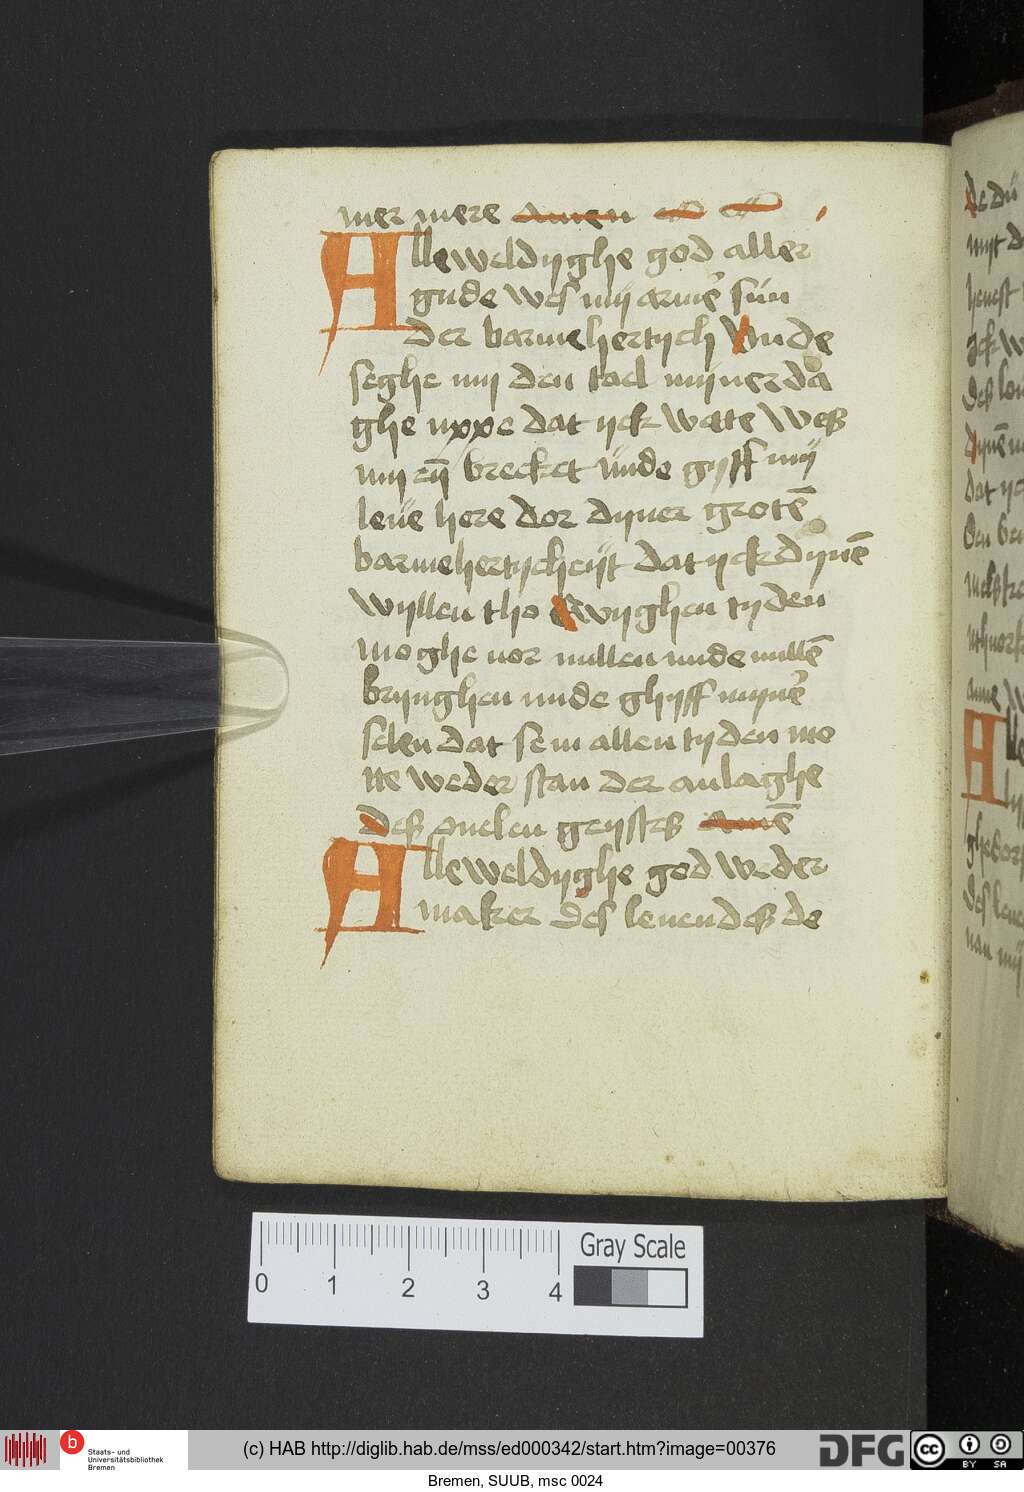 mer mere Amen
Alleweldyghe god aller
gude wes mij armē sun
der barmehertych vnde
seghe mij den tael mijner da
ghe uppe dat yck wete weß
mij eȳ brecket ünde gyff mij
leüe here dor dyner grotē
barmehertycheyt dat yck dynē
wyllen tho Ewyghen tyden
moghe vor nullen unde nullē
brynghen unde ghyff mynē
selen dat se in allen tyden mo
tte weder stan der anlaghe
deß ouelen geystes Amē
Alleweldyghe god weder
maker des leuendeß de
0 1 2 3 4
Gray Scale
b
Staats- und
Universitätsbibliothek
Bremen
(c) HAB http://diglib.hab.de/mss/ed000342/start.htm?image=00376
DFG
cc
BY SA
Bremen, SUUB, msc 0024